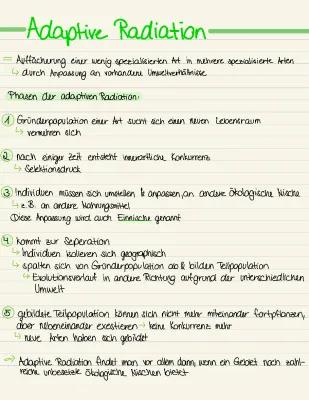 Adaptive Radiation
= Auffächerung einer wenig spezialisierten Art in mehrere spezialisierte Arten
↳ durch Anpassung an vorhandene Umweltverhältnisse
Phasen der adaptiven Radiation:
① Gründerpopulation einer Art sucht sich einen neuen Lebensraum
↳ vermehren sich
② nach einiger Zeit entsteht innerartliche Konkurrenz
↳ Selektionsdruck
③ Individuen müssen sich umstellen & anpassen, an andere ökologische Nische
↳ z.B. an andere Nahrungsmittel
Diese Anpassung wird auch Einnische genannt
④ kommt zur Seperation
↳ Individuen isolieren sich geographisch
↳ spalten sich von Gründerpopulation ab & bilden Teilpopulation
↳ Evolutionsverlauf in andere Richtung aufgrund der unterschiedlichen
Umwelt
⑤ gebildete Teilpopulation können sich nicht mehr miteinander fortpflanzen,
aber nebeneinander exestieren → keine Konkurrenz mehr
↳ neue Arten haben sich gebildet
⇒ Adaptive Radiation findet man vor allem dann, wenn ein Gebiet noch zahl-
reiche unbesetzte ökologische Nischen bietet